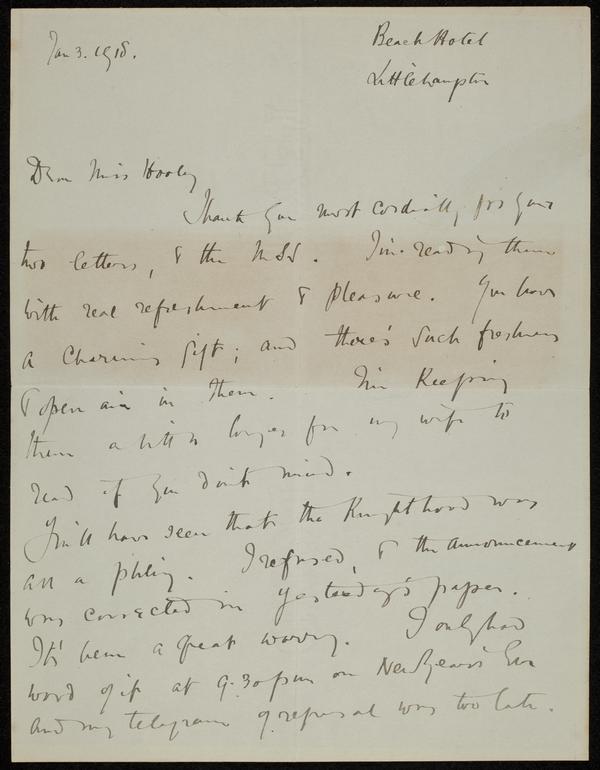 Jan 3. 1918.
Beach Hotel
Littlehampton
Dear Miss Hooley
Thank you most cordially for your
two letters, & the MSS. I'm reading them
with real refreshment & pleasure. You have
a charming gift; and there's such freshness
& open air in them. I'm keeping
them a little longer for my wife to
read if you don't mind.
You'll have seen that the Knighthood was
all a. I refused, & the announcement
was corrected in yesterday's paper.
It's been a great worry. I only had
word of it at 9.30 pm on New Year's Eve
and my telegram of refusal was too late.